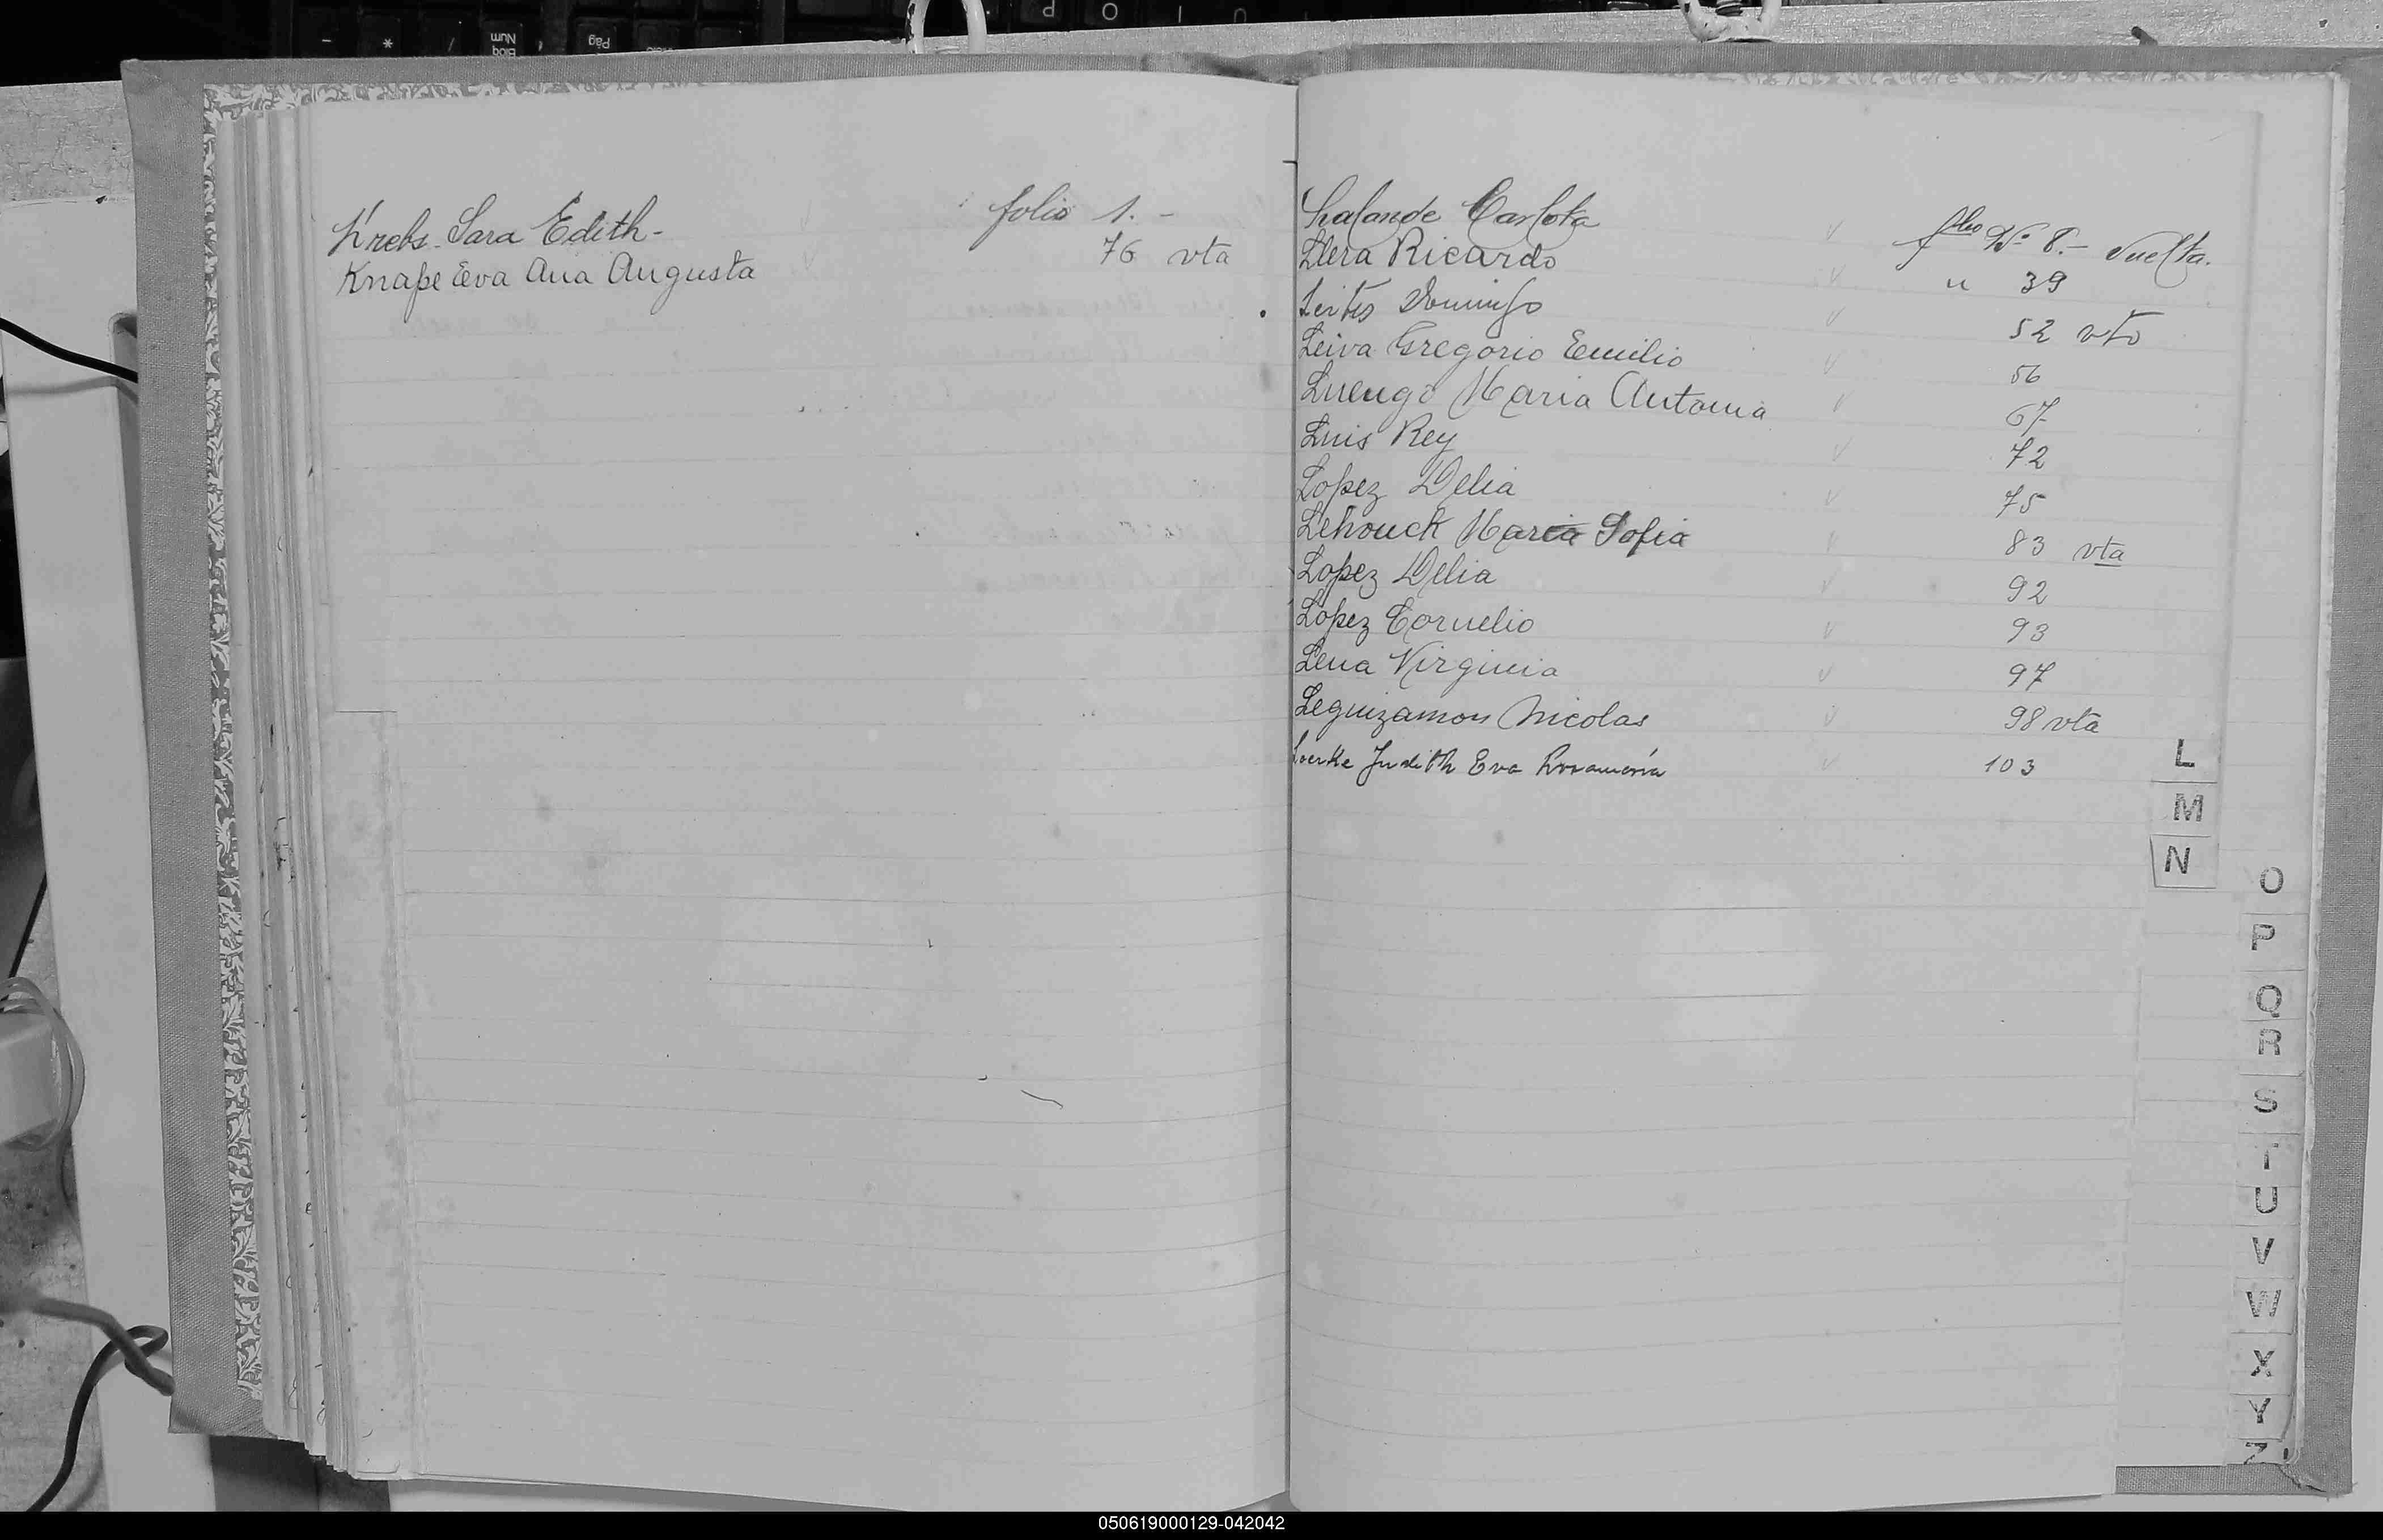 Krebs Sara Edith - folio 1. -
Knape Eva Ana Augusta 76 vta
Lalande Carlota flio Nº 8.- Vuelta.
Llera Ricardo " 39
Leites Domingo 52 vto
Leiva Gregorio Emilio 56
Luengo Maria Antonia 67
Luis Rey 72
Lopez Delia 75
Lehouck Maria Sofia 83 vta
Lopez Delia 92
Lopez Cornelio 93
Lena Virginia 97
Leguizamon Nicolas 98 vta
Loerke Judith Eva Rosamaría 103
L
M
N
O
P
Q
R
S
T
U
V
W
X
Y
Z
050619000129-042042